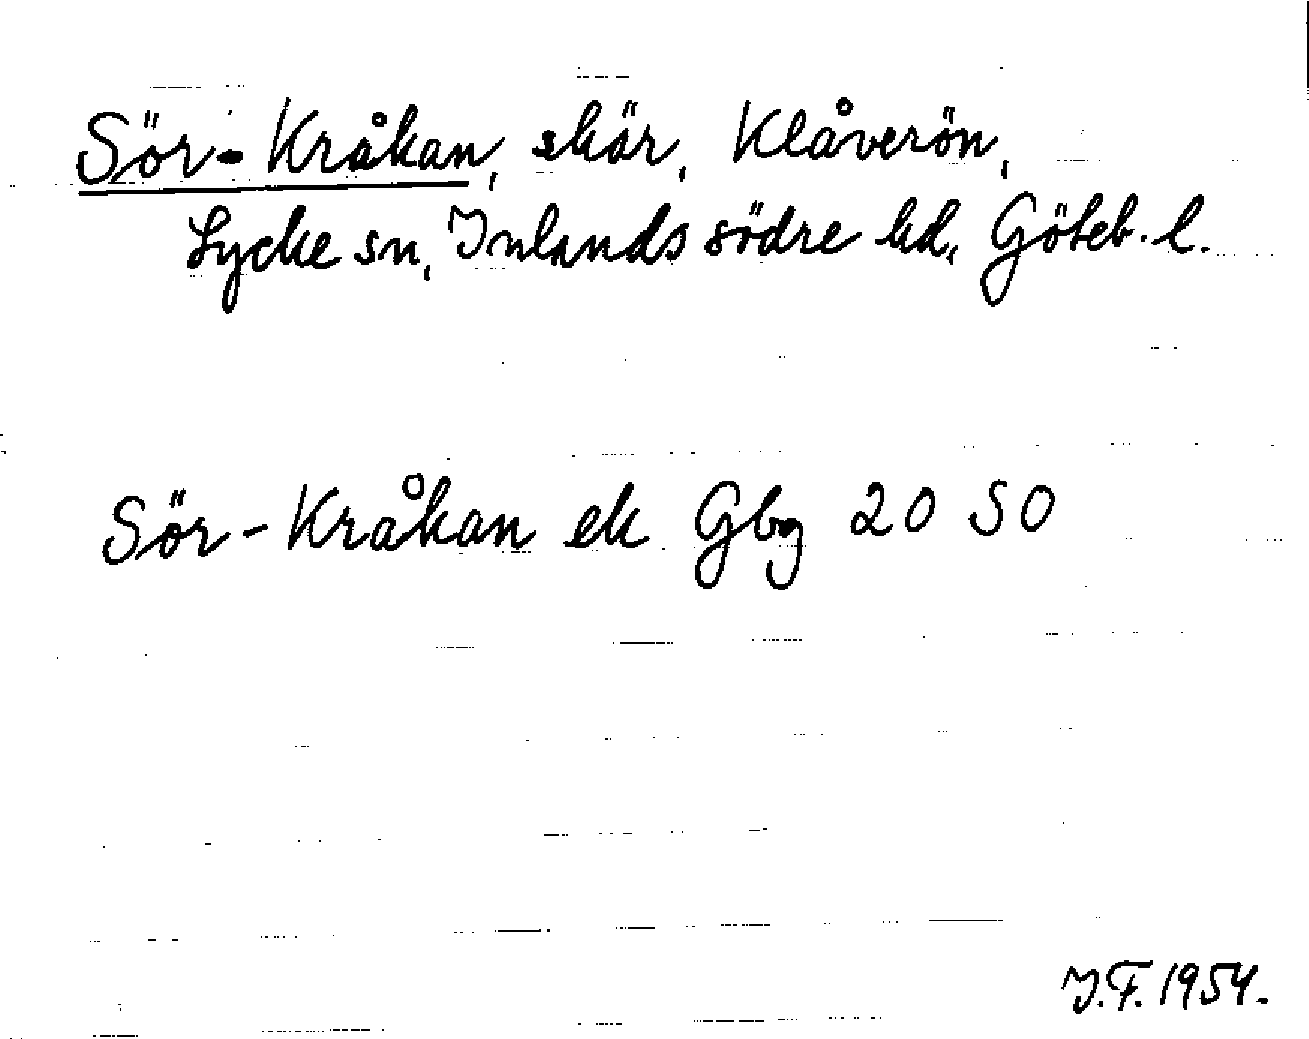 Sör-Kråkan, skär, Klåverön,
Lycke sn, Inlands södre hd, Göteb. l.
Sör-Kråkan ek Gbg 20 SO
J.F. 1954.